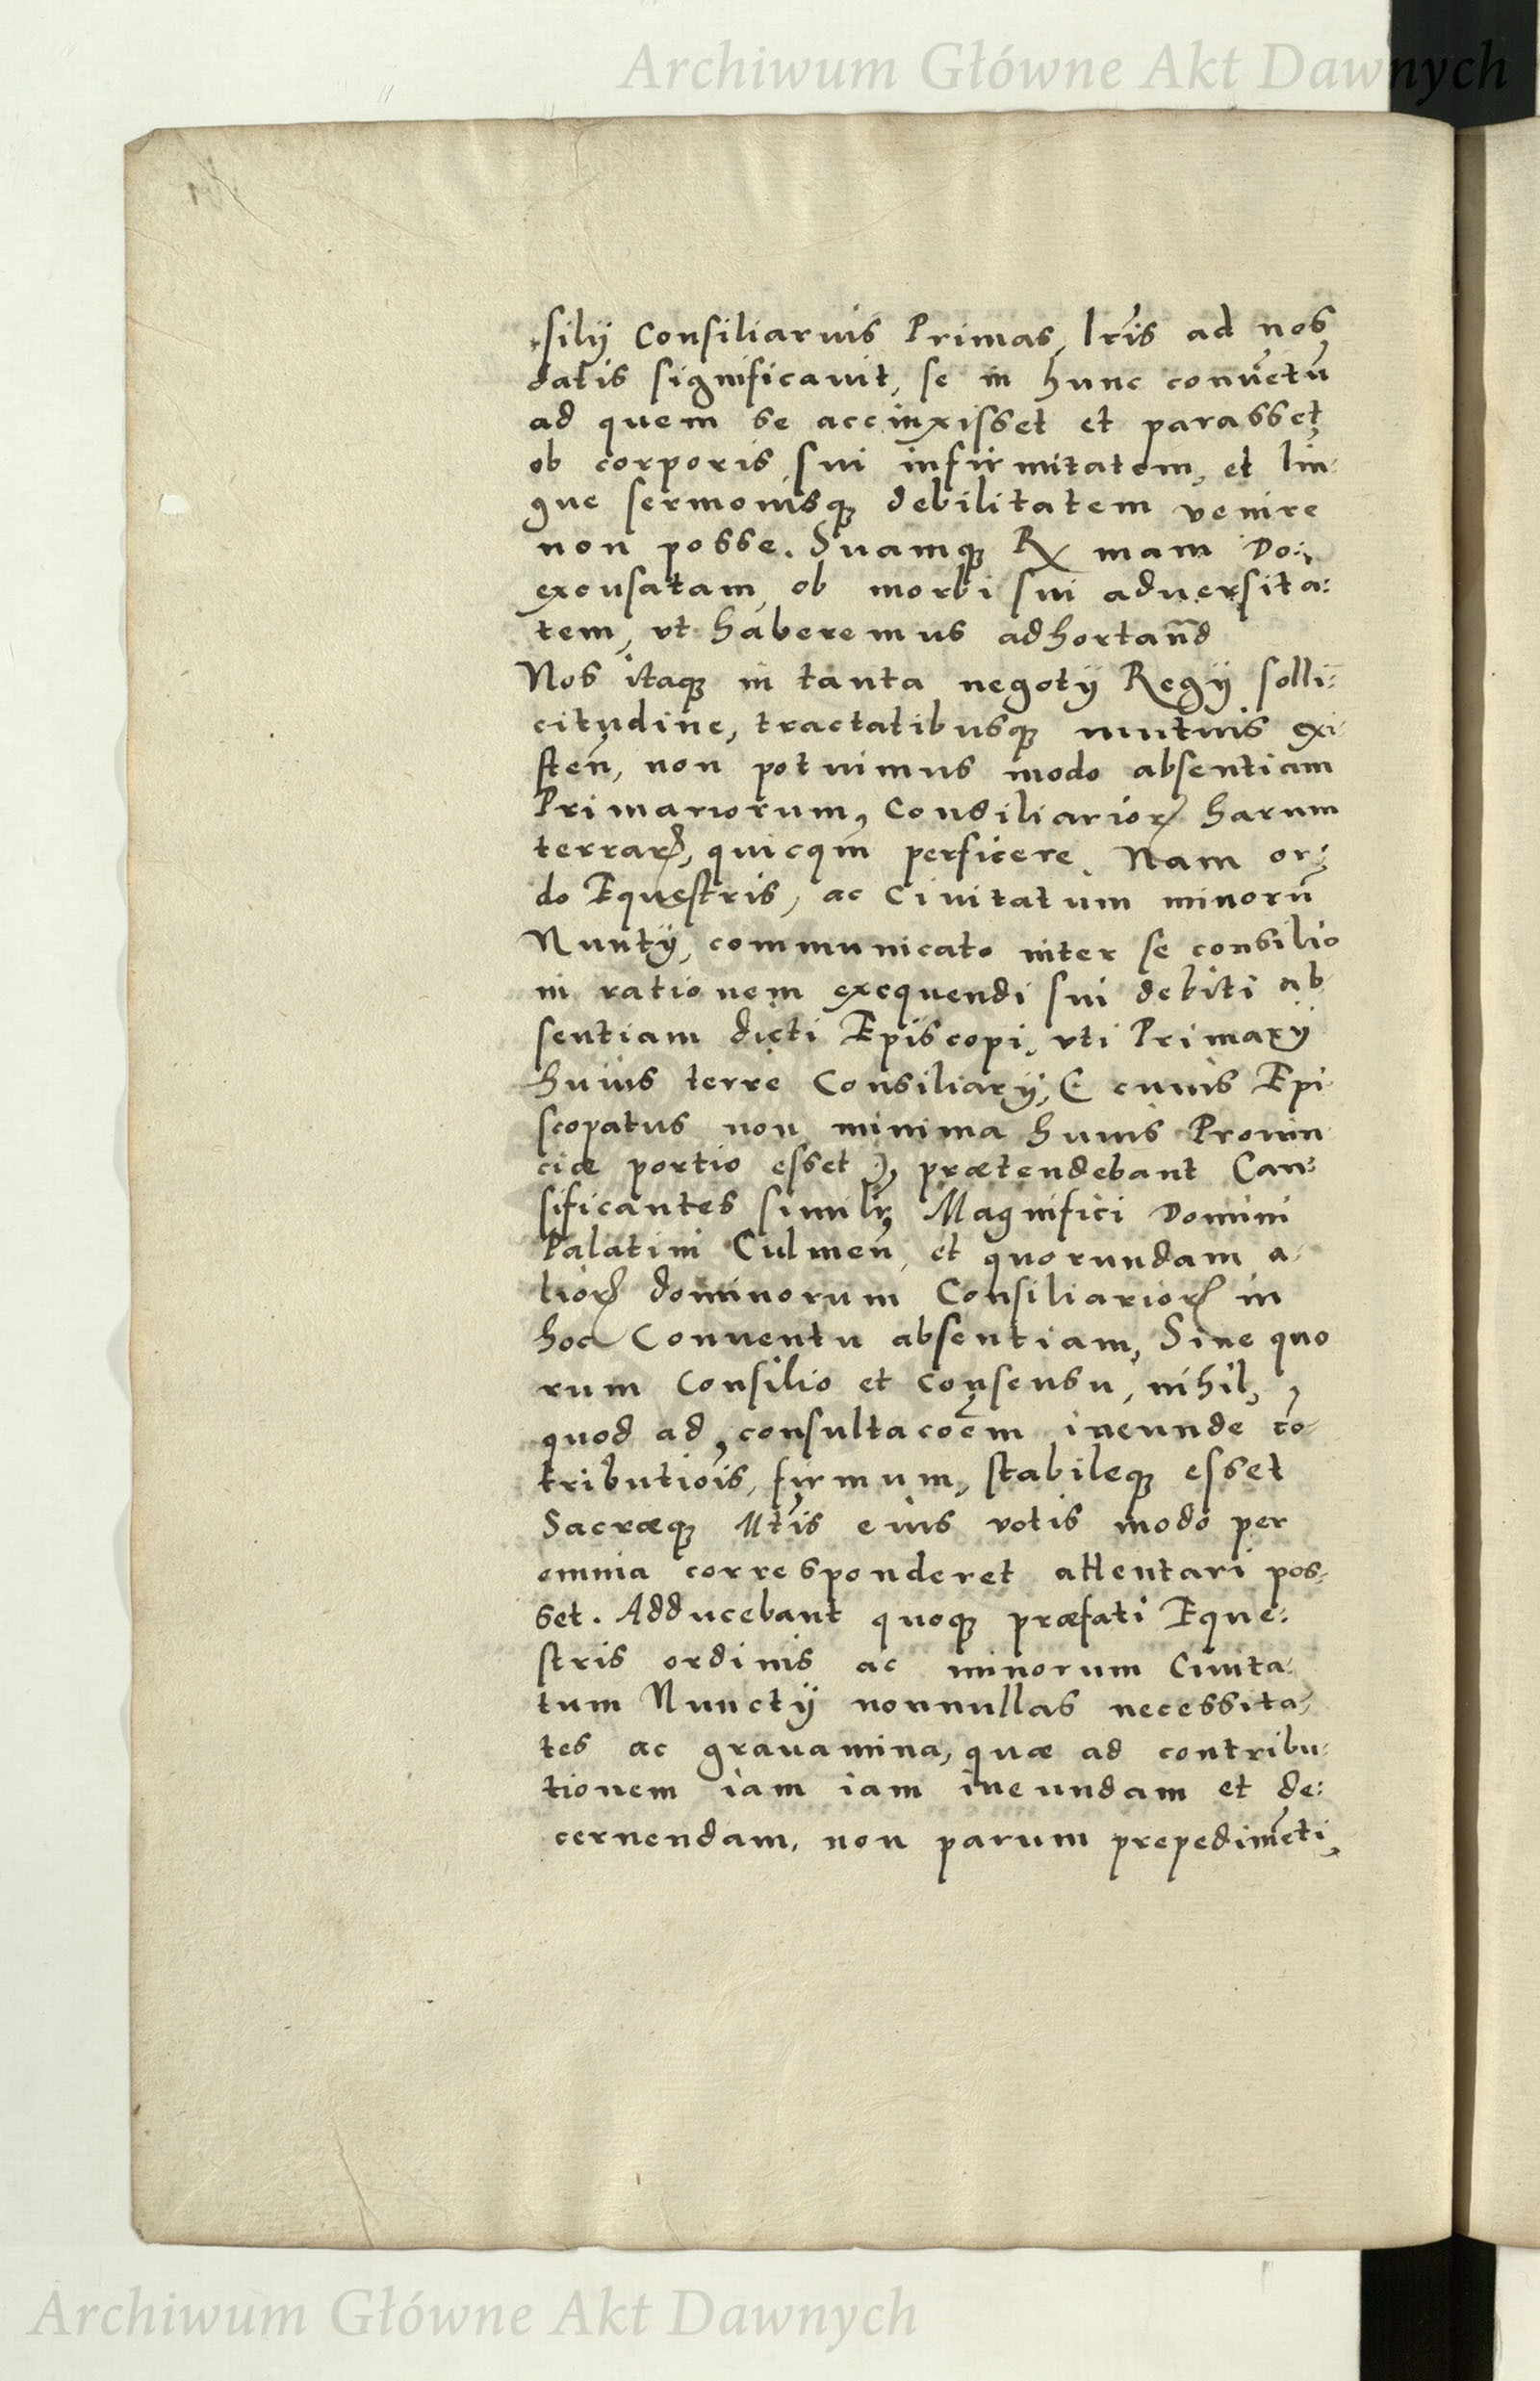 Archiwum Główne Akt Dawnych
silij Consiliarius Primas, lr̃is ad nos
datis significauit, se in hunc conuẽtũ
ad quem se accinxisset et parasset,
ob corporis sui infirmitatem, et lin-
gue sermonisqꝫ debilitatem venire
non posse. Suamqꝫ R mam Do:
excusatam, ob morbi sui aduersita:
tem, vt haberemus adhortañd
Nos itaqꝫ in tanta negotij Regij solli:
citudine, tractatibusqꝫ mutuis exi-
steñ, non potuimus modo absentiam
Primariorum, Consiliarioꝝ harum
terraꝝ, quicqm̃ perficere. Nam or:
do Equestris, ac Ciuitatum minorũ
Nuntij, communicato inter se consilio
in rationem exequendi sui debiti ab
sentiam dicti Episcopi, vti Primarij
huius terre Consiliarij, ( cuius Epi
scopatus non minima huius Prouin
ciæ portio esset ), prætendebant Cau:
sificantes similr̃ Magnifici Domini
Palatini Culmeñ, et quorundam a-
lioꝝ dominorum Consiliarioꝝ in
hoc Conuentu absentiam, Sine quo
rum Consilio et Consensu, nihil,
quod ad consultacoẽm ineunde cõ-
tributiõis, firmum, stabileqꝫ esset
Sacræqꝫ Mt̃is eius votis modo per
omnia corresponderet attentari pos-
set. Adducebant quoqꝫ præfati Eque:
stris ordinis ac minorum Ciuita:
tum Nunctij nonnullas necessita-
tes ac grauamina, quæ ad contribu:
tionem iam iam ineundam et de:
cernendam, non parum prepedimẽti,
Archiwum Główne Akt Dawnych